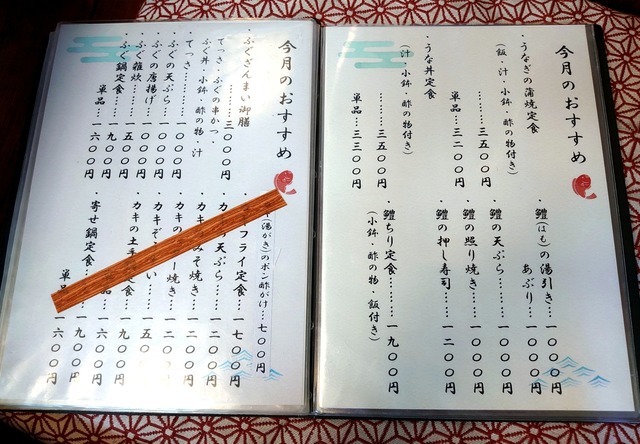 今月のおすすめ
・うなぎの蒲焼定食
(飯・汁・小鉢・酢の物付き)
………三五〇〇円
単品……三二〇〇円
・うな丼定食
(汁・小鉢・酢の物付き)
………三五〇〇円
単品……三三〇〇円
・鱧(はも)の湯引き…一〇〇〇円
あぶり…一〇〇〇円
・鱧の天ぷら……一〇〇〇円
・鱧の照り焼き…一〇〇〇円
・鱧の押し寿司……一二〇〇円
・鱧ちり定食………一九〇〇円
(小鉢・酢の物・飯付き)
今月のおすすめ
・ふぐざんまい御膳
………三〇〇〇円
てっさ・ふぐの串かつ、
ふぐ丼、小鉢・酢の物・汁
・てっさ………一〇〇〇円
・ふぐの天ぷら…一〇〇〇円
・ふぐの唐揚げ…一〇〇〇円
・ふぐ雑炊………一五〇〇円
・ふぐ鍋定食……一九〇〇円
単品…一六〇〇円
(湯がき)のポン酢がけ…七〇〇円
フライ定食…一七〇〇円
天ぷら
みそ焼き
カキの
焼き
カキの土手
定食
・寄せ鍋定食
単
一六〇〇円